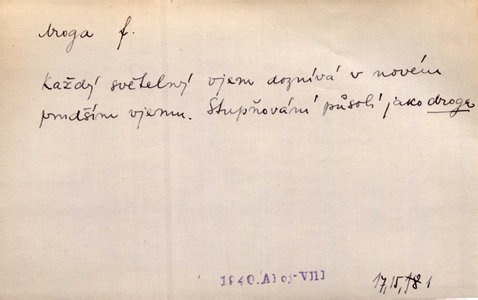 droga f.
Každý světelný vjem doznívá v novém
prudším vjemu. Stupňování působí jako droga
1940.
17,15,